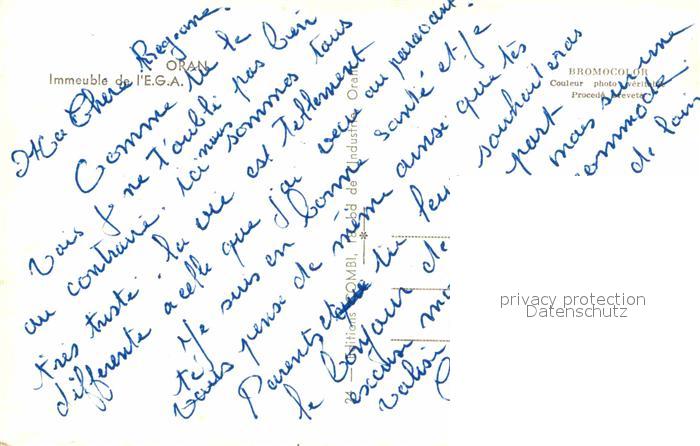 ORAN
Immeuble de l'E.G.A.
BROMOCOLOR
Couleur photo véritable
Procédé breveté
Ma Chère Régane.
Comme tu le
vois je ne t'oublie pas bien
au contraire. ici nous sommes tous
très triste la vie est tellement
differente a celle que j'ai vecu au paravant.
Je suis en bonne santé et je
vous pense de même ainsi que tes
Parents et tu leur souhaiteras
le bonjour de part
excuse mais sur une
valise commode
de loin
24 — Editions COMBI, Bd de l'Industrie Oran
privacy protection
Datenschutz